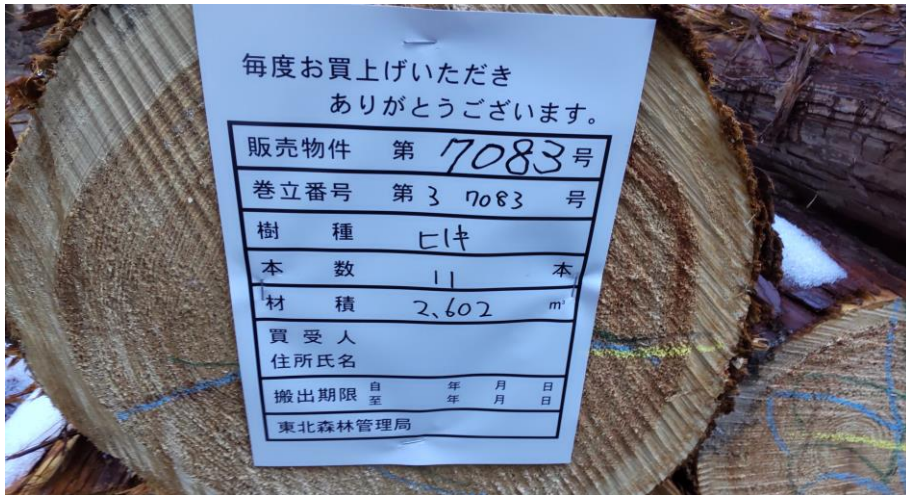 毎度お買上げいただき
ありがとうございます。
販売物件 第 7083 号
巻立番号 第3 7083 号
樹種 ヒノキ
本数 11 本
材積 2、602 m³
買受人
住所氏名
搬出期限 自 年 月 日
至 年 月 日
東北森林管理局